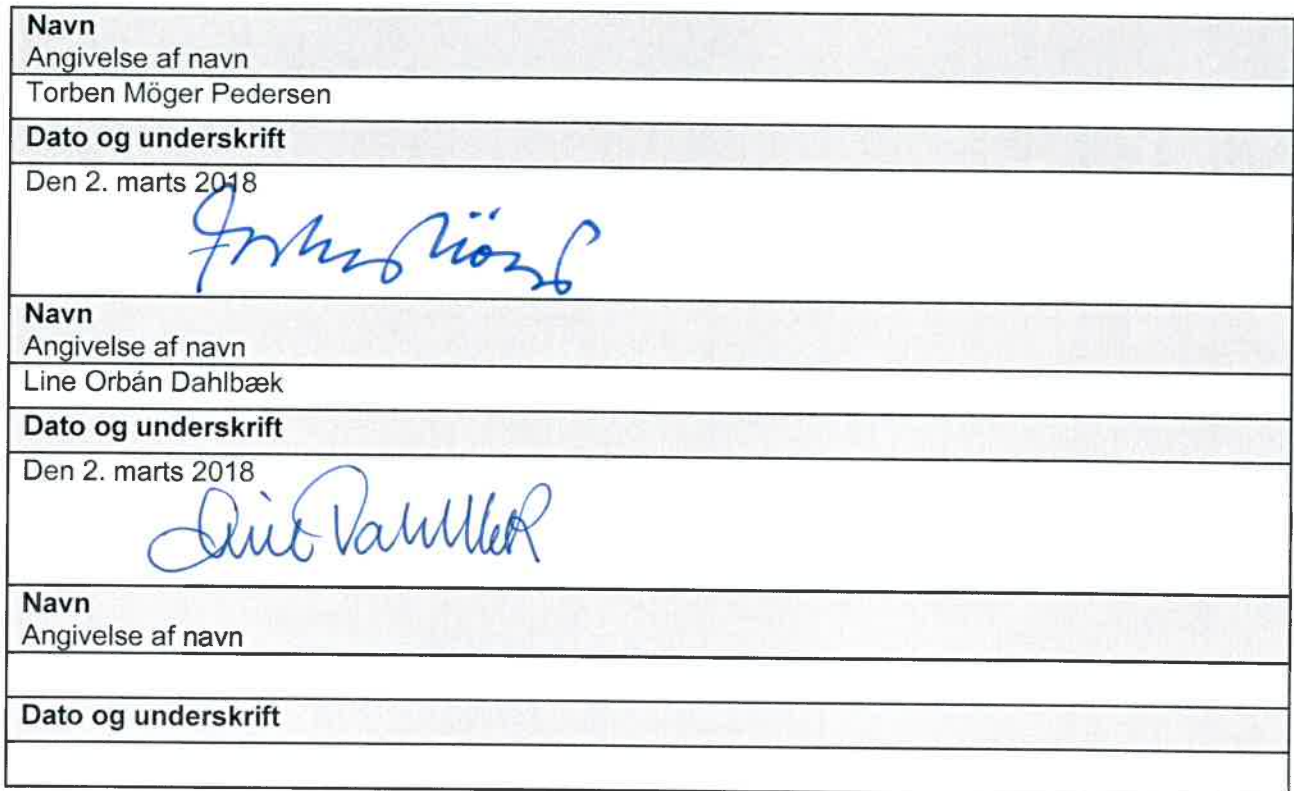 Navn
Angivelse af navn
Torben Möger Pedersen
Dato og underskrift
Den 2. marts 2018
Navn
Angivelse af navn
Line Orbán Dahlbæk
Dato og underskrift
Den 2. marts 2018
Navn
Angivelse af navn
Dato og underskrift